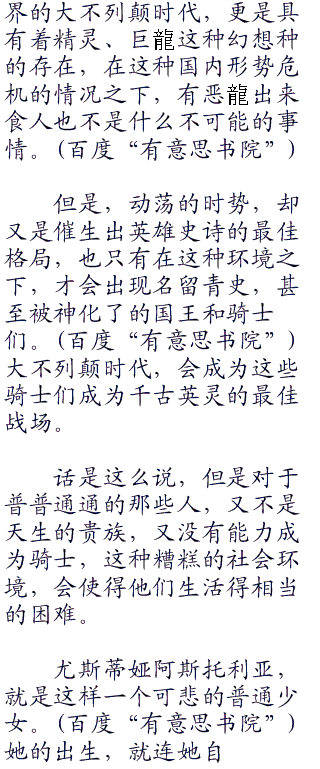 界的大不列颠时代，更是具
有着精灵、巨龍这种幻想种
的存在，在这种国内形势危
机的情况之下，有恶龍出来
食人也不是什么不可能的事
情。(百度“有意思书院”)
但是，动荡的时势，却
又是催生出英雄史诗的最佳
格局，也只有在这种环境之
下，才会出现名留青史，甚
至被神化了的国王和骑士
们。(百度“有意思书院”)
大不列颠时代，会成为这些
骑士们成为千古英灵的最佳
战场。
话是这么说，但是对于
普普通通的那些人，又不是
天生的贵族，又没有能力成
为骑士，这种糟糕的社会环
境，会使得他们生活得相当
的困难。
尤斯蒂娅阿斯托利亚，
就是这样一个可悲的普通少
女。(百度“有意思书院”)
她的出生，就连她自